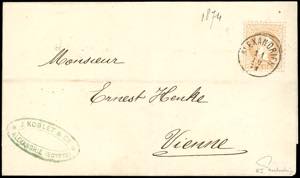 1874
ALEXANDRIEN
Monsieur
Ernest Henke
Vienne
KOBLET & Co
ALEXANDRIE (EGYPTE)